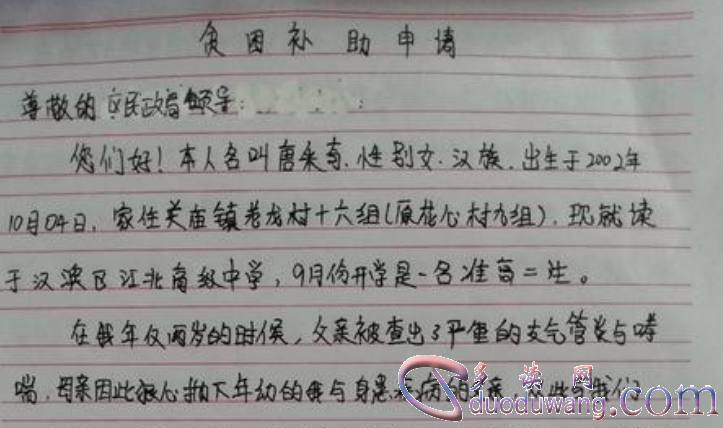 贫困补助申请
尊敬的区民政局领导：
您们好！本人名叫唐采奇.性别女.汉族.出生于2002年
10月04日，家住关庙镇老龙村十六组(原花心村九组)，现就读
于汉滨区江北高级中学，9月份开学是一名准高二生。
在我年仅两岁的时候，父亲被查出了严重的支气管炎与哮
喘，母亲因此狠心抛下年幼的我与身患疾病的父亲，从此与我们
多读网
duoduwang.com